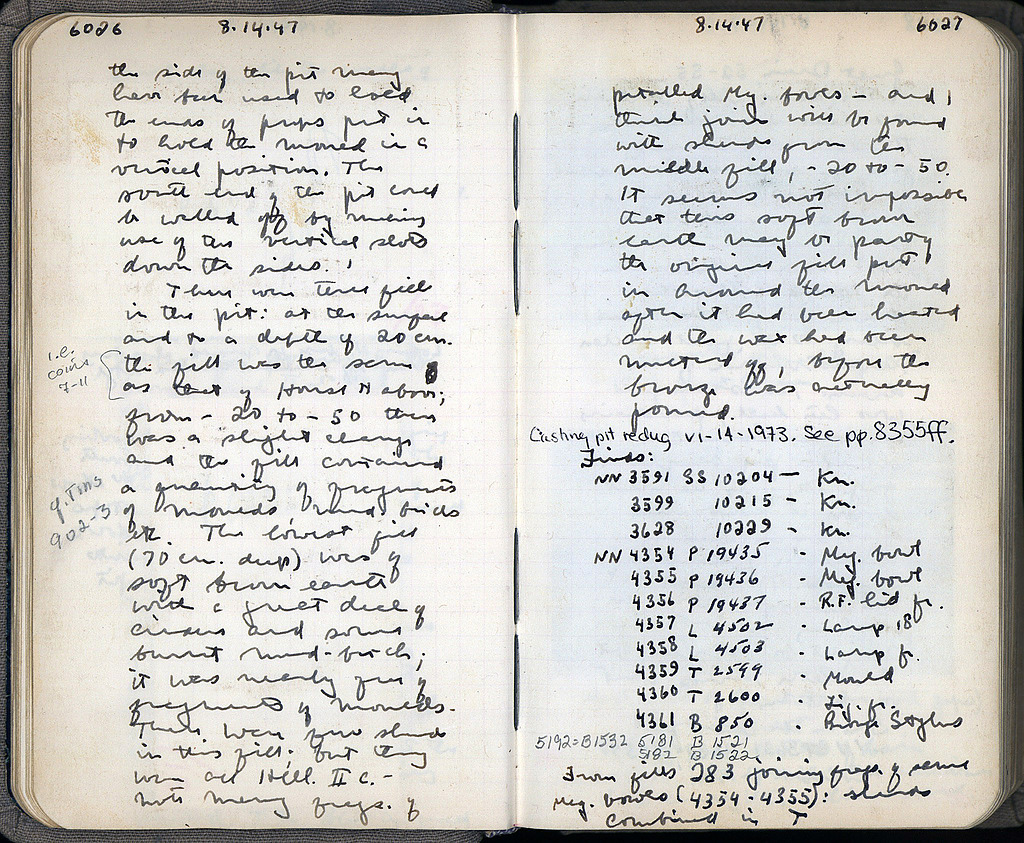 6026 8.14.47
the side of the pit may
have been used to hold
the ends of props put in
to hold the mould in a
vertical position. The
south end of the pit could
be walled off by making
use of the vertical slots
down the sides.
There were three fills
in the pit: at the surface
and to a depth of 20 cm.
the fill was the same
as that of House H above;
from - 20 to - 50 there
was a slight change
and the fill contained
a quantity of fragments
of moulds mud bricks
etc. The lowest fill
(70 cm. deep) was of
soft brown earth
with a great deal of
cinders and some
burnt mud-brick;
it was nearly free of
fragments of moulds.
There were few sherds
in this fill; but they
were all Hell. II c. -
note many frags. of
i.e.
coins
7-11
cf. Tins
902-3
8.14.47 6027
pitalled Meg. bowls - and I
think joins will be found
with sherds from the
middle fill, - 20 to - 50.
It seems not impossible
that this soft brown
earth may be partly
the original fill put
in around the mould
after it had been heated
and the wax had been
melted off, before the
bronze was actually
poured.
Casting pit redug VI-14-1973. See pp. 8355ff.
Finds:
NN 3591 SS 10204 - Kn.
3599 10215 - Kn.
3628 10229 - Kn.
NN 4354 P 19435 - Meg. bowl
4355 P 19436 - Meg. bowl
4356 P 19437 - R.F. lid fr.
4357 L 4502 - Lamp 18
4358 L 4503 - Lamp fr.
4359 T 2599 - Mould
4360 T 2600 - Fig. fr.
4361 B 850 - Bronze Stylus
5192=B1532 5181 B 1521
5182 B 1522
From fills 2&3 joining frags. of same
Meg. bowls (4354-4355): sherds
combined in T